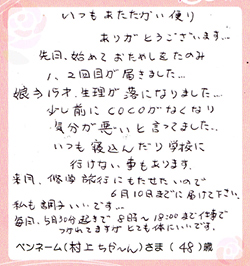 いつもあたたかい便り
ありがとうございます…
先日、始めておためしをたのみ
1、2回目が届きました…
娘今15才、生理が落になりました…
少し前にCOCOがなくなり
気分が悪いと言ってました…
いつも寝込んだり学校に
行けない事もあります。
来月、修学旅行にもたせたいので
6月10日までに届けて下さい。
私も調子いいです…
毎日、5時30分起きで8時〜18:00まで仕事で
つかれてますがとても体にいいです。
ペンネーム(村上ちゃ〜ん)さま(48)歳